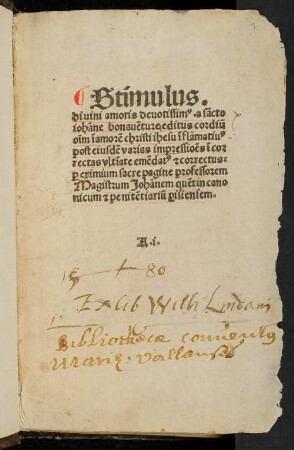 Stimulus.
diuini amoris deuotissimꝰ. a sācto
iohāne bonauētura editus cordiū
oīm ī amorē christi ihesu īflamatiuꝰ
post eiusdē varias impressiões ī cor
rectas vltīate emēdatꝰ ⁊ correctus.
ꝑ eximium sacre pagine professorem
Magistrum Johānem quētin cano
nicum ⁊ penitētiariū ꝑisiensem.
A.i.
80
Ex Lib Wilh: Lindani
Bibliothecæ conuentꝰ
Mariæ: vallensis